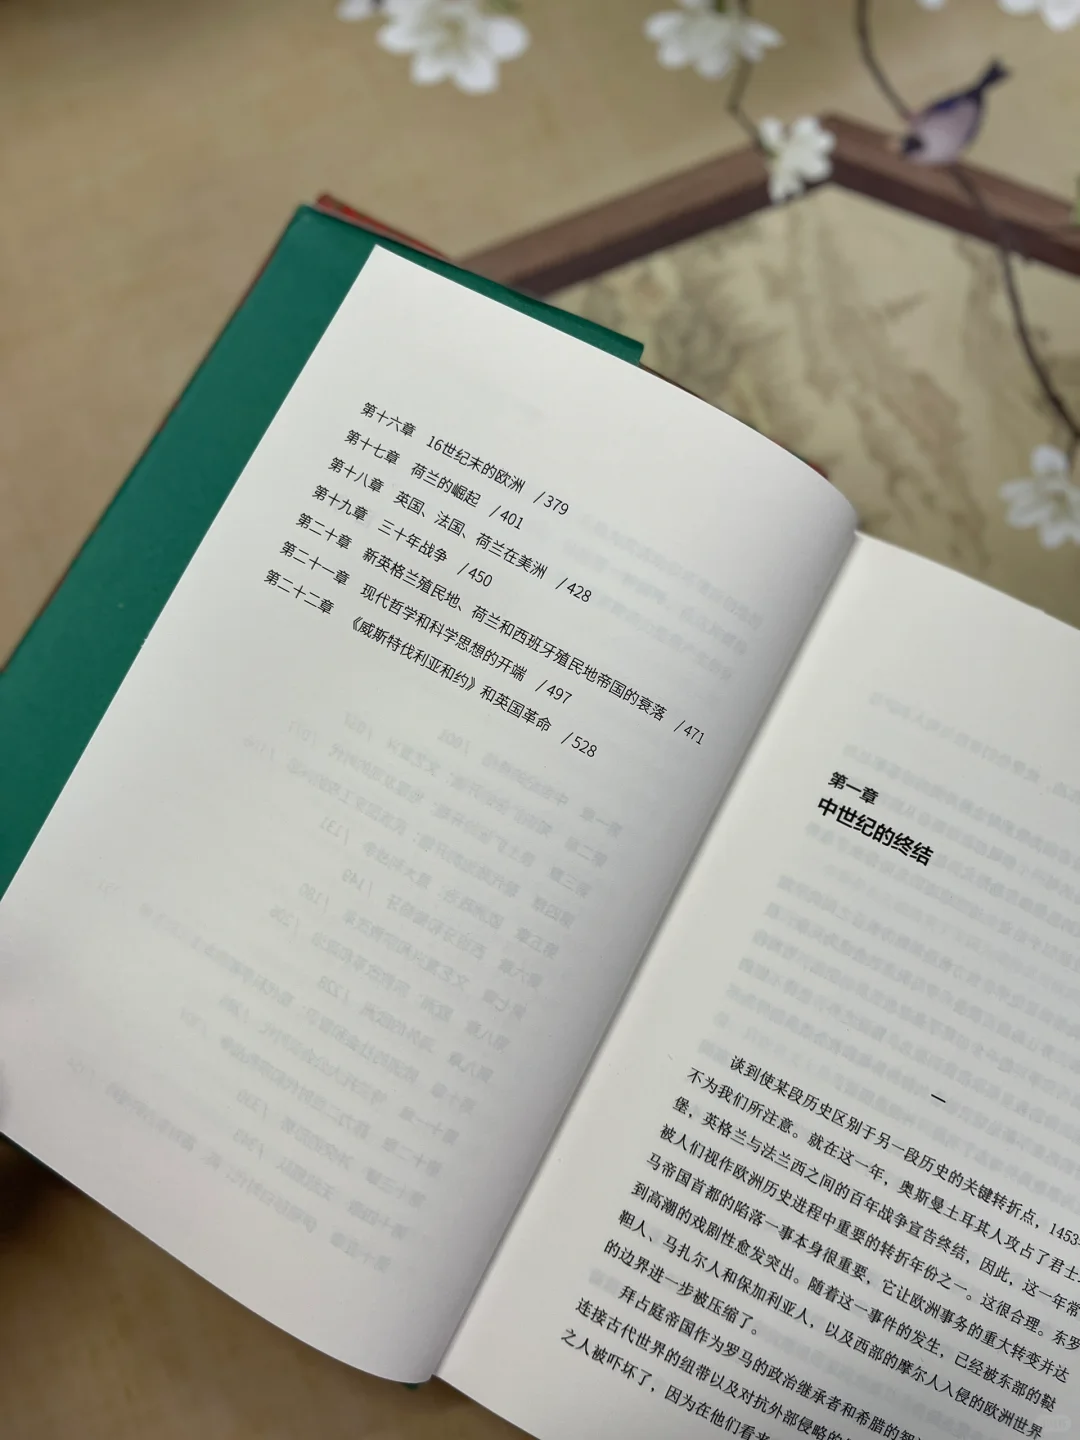 第十六章 16世纪末的欧洲 / 379
第十七章 荷兰的崛起 / 401
第十八章 英国、法国、荷兰在美洲 / 428
第十九章 三十年战争 / 450
第二十章 新英格兰殖民地、荷兰和西班牙殖民地帝国的衰落 / 471
第二十一章 现代哲学和科学思想的开端 / 497
第二十二章 《威斯特伐利亚和约》和英国革命 / 528
第一章
中世纪的终结
一
谈到使某段历史区别于另一段历史的关键转折点，1453
不为我们所注意。就在这一年，奥斯曼土耳其人攻占了君士
堡，英格兰与法兰西之间的百年战争宣告终结，因此，这一年常
被人们视作欧洲历史进程中重要的转折年份之一。这很合理。东罗
马帝国首都的陷落一事本身很重要，它让欧洲事务的重大转变并达
到高潮的戏剧性愈发突出。随着这一事件的发生，已经被东部的鞑
靼人、马扎尔人和保加利亚人，以及西部的摩尔人入侵的欧洲世界
的边界进一步被压缩了。
拜占庭帝国作为罗马的政治继承者和希腊的智
连接古代世界的纽带以及对抗外部侵略的
之人被吓坏了，因为在他们看来